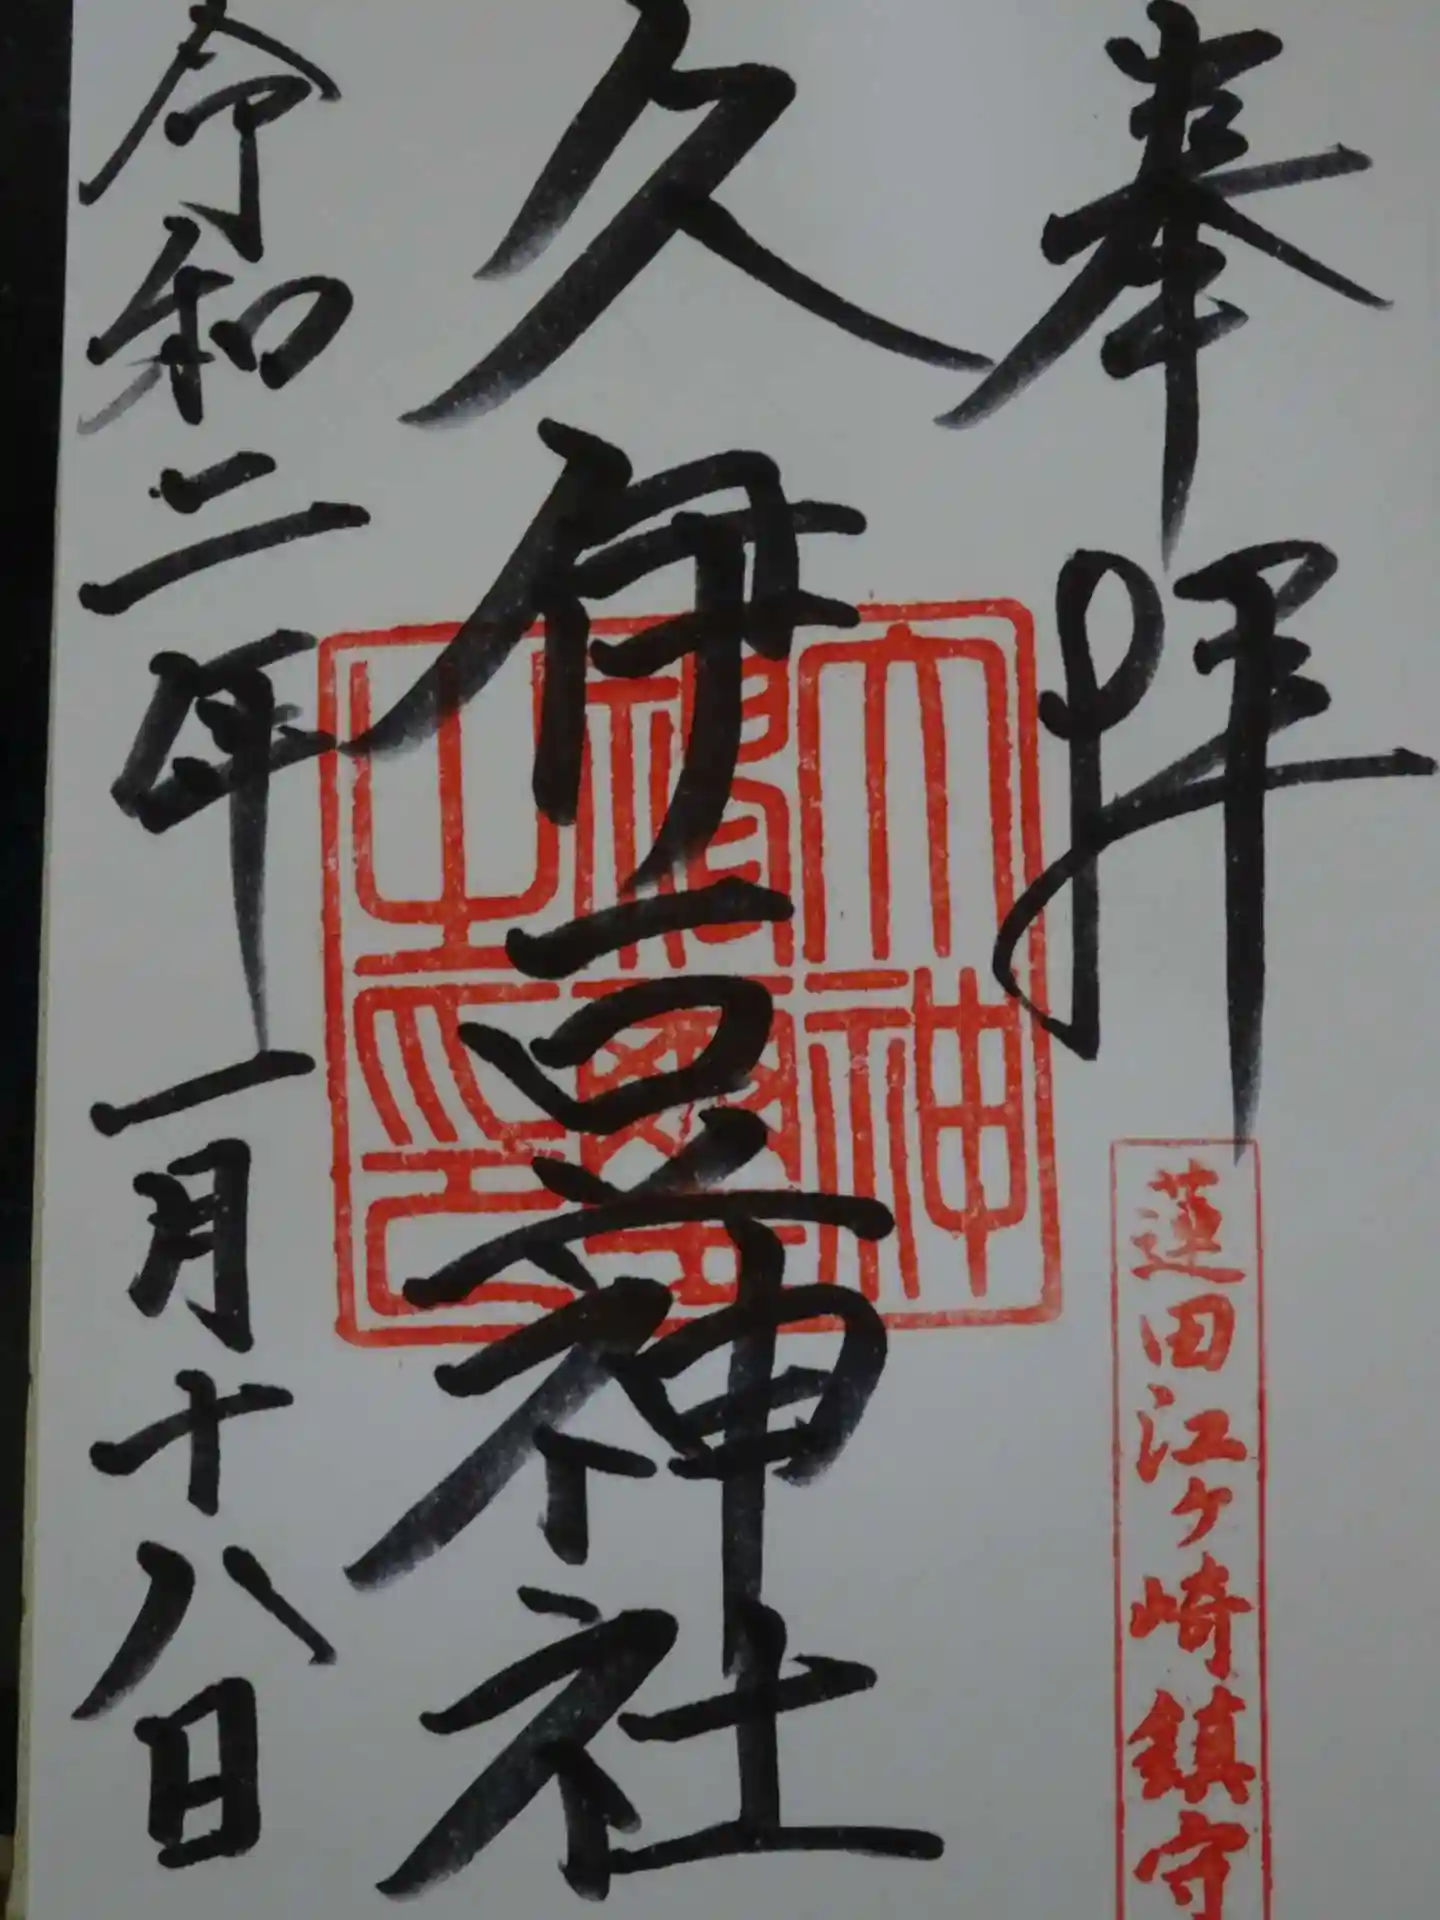 奉拝
蓮田江ヶ崎鎮守
久伊豆神社
令和二年一月十八日